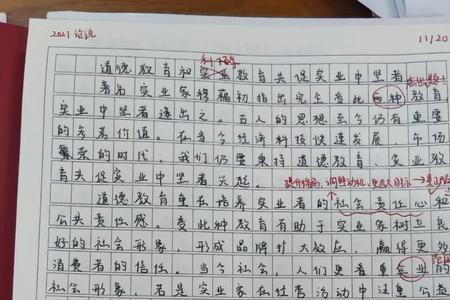 2021论说
11/20
科学
道德教育和实业教育共促实业中坚者
著名实业家穆藕初指出完全受此两种教育,
实业中坚者遂出之。古人的思想至今仍有重要
的参考价值。在当今经济科技快速发展、市场
繁荣的时代,我们仍要坚持道德教育、实业教
育共促实业中坚者兴起。
道德教育重在培养实业者的社会责任心和
公共责任感。受此种教育有助于实业家树立良
好的社会形象,形成品牌扩大效应,赢得更多
消费者的信任。当今社会,人们更看重企业的
社会形象,若是实业家在经营活动中注重公益